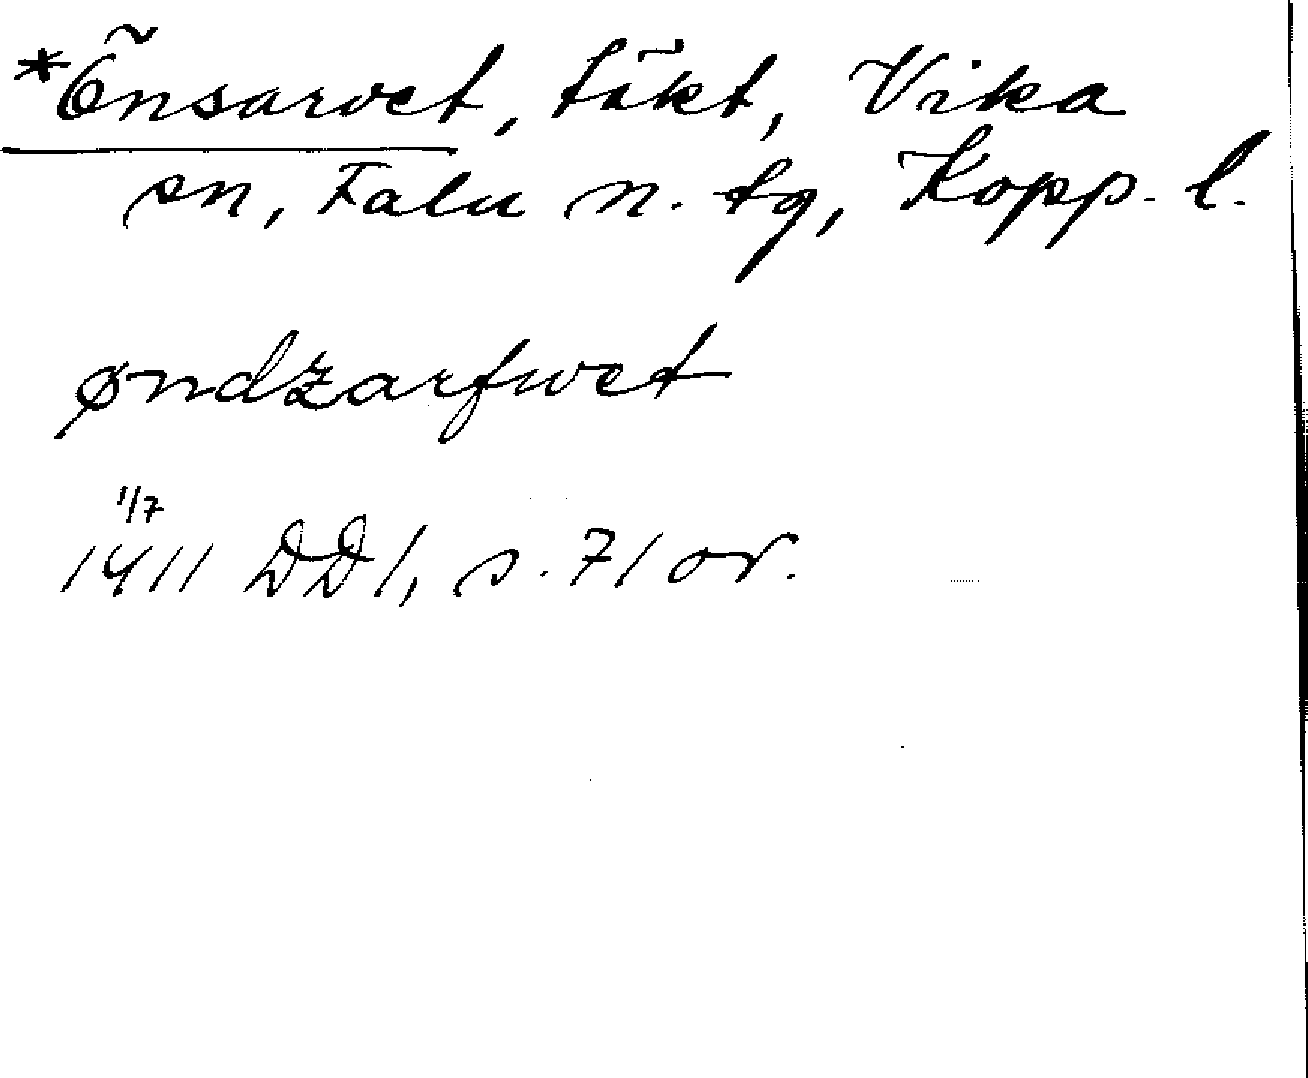 *Önsarvet, täkt, Vika
sn, Falu n. tg, Kopp. l.
øndzarfwet
1/7
1411 DD 1, s. 71 or.